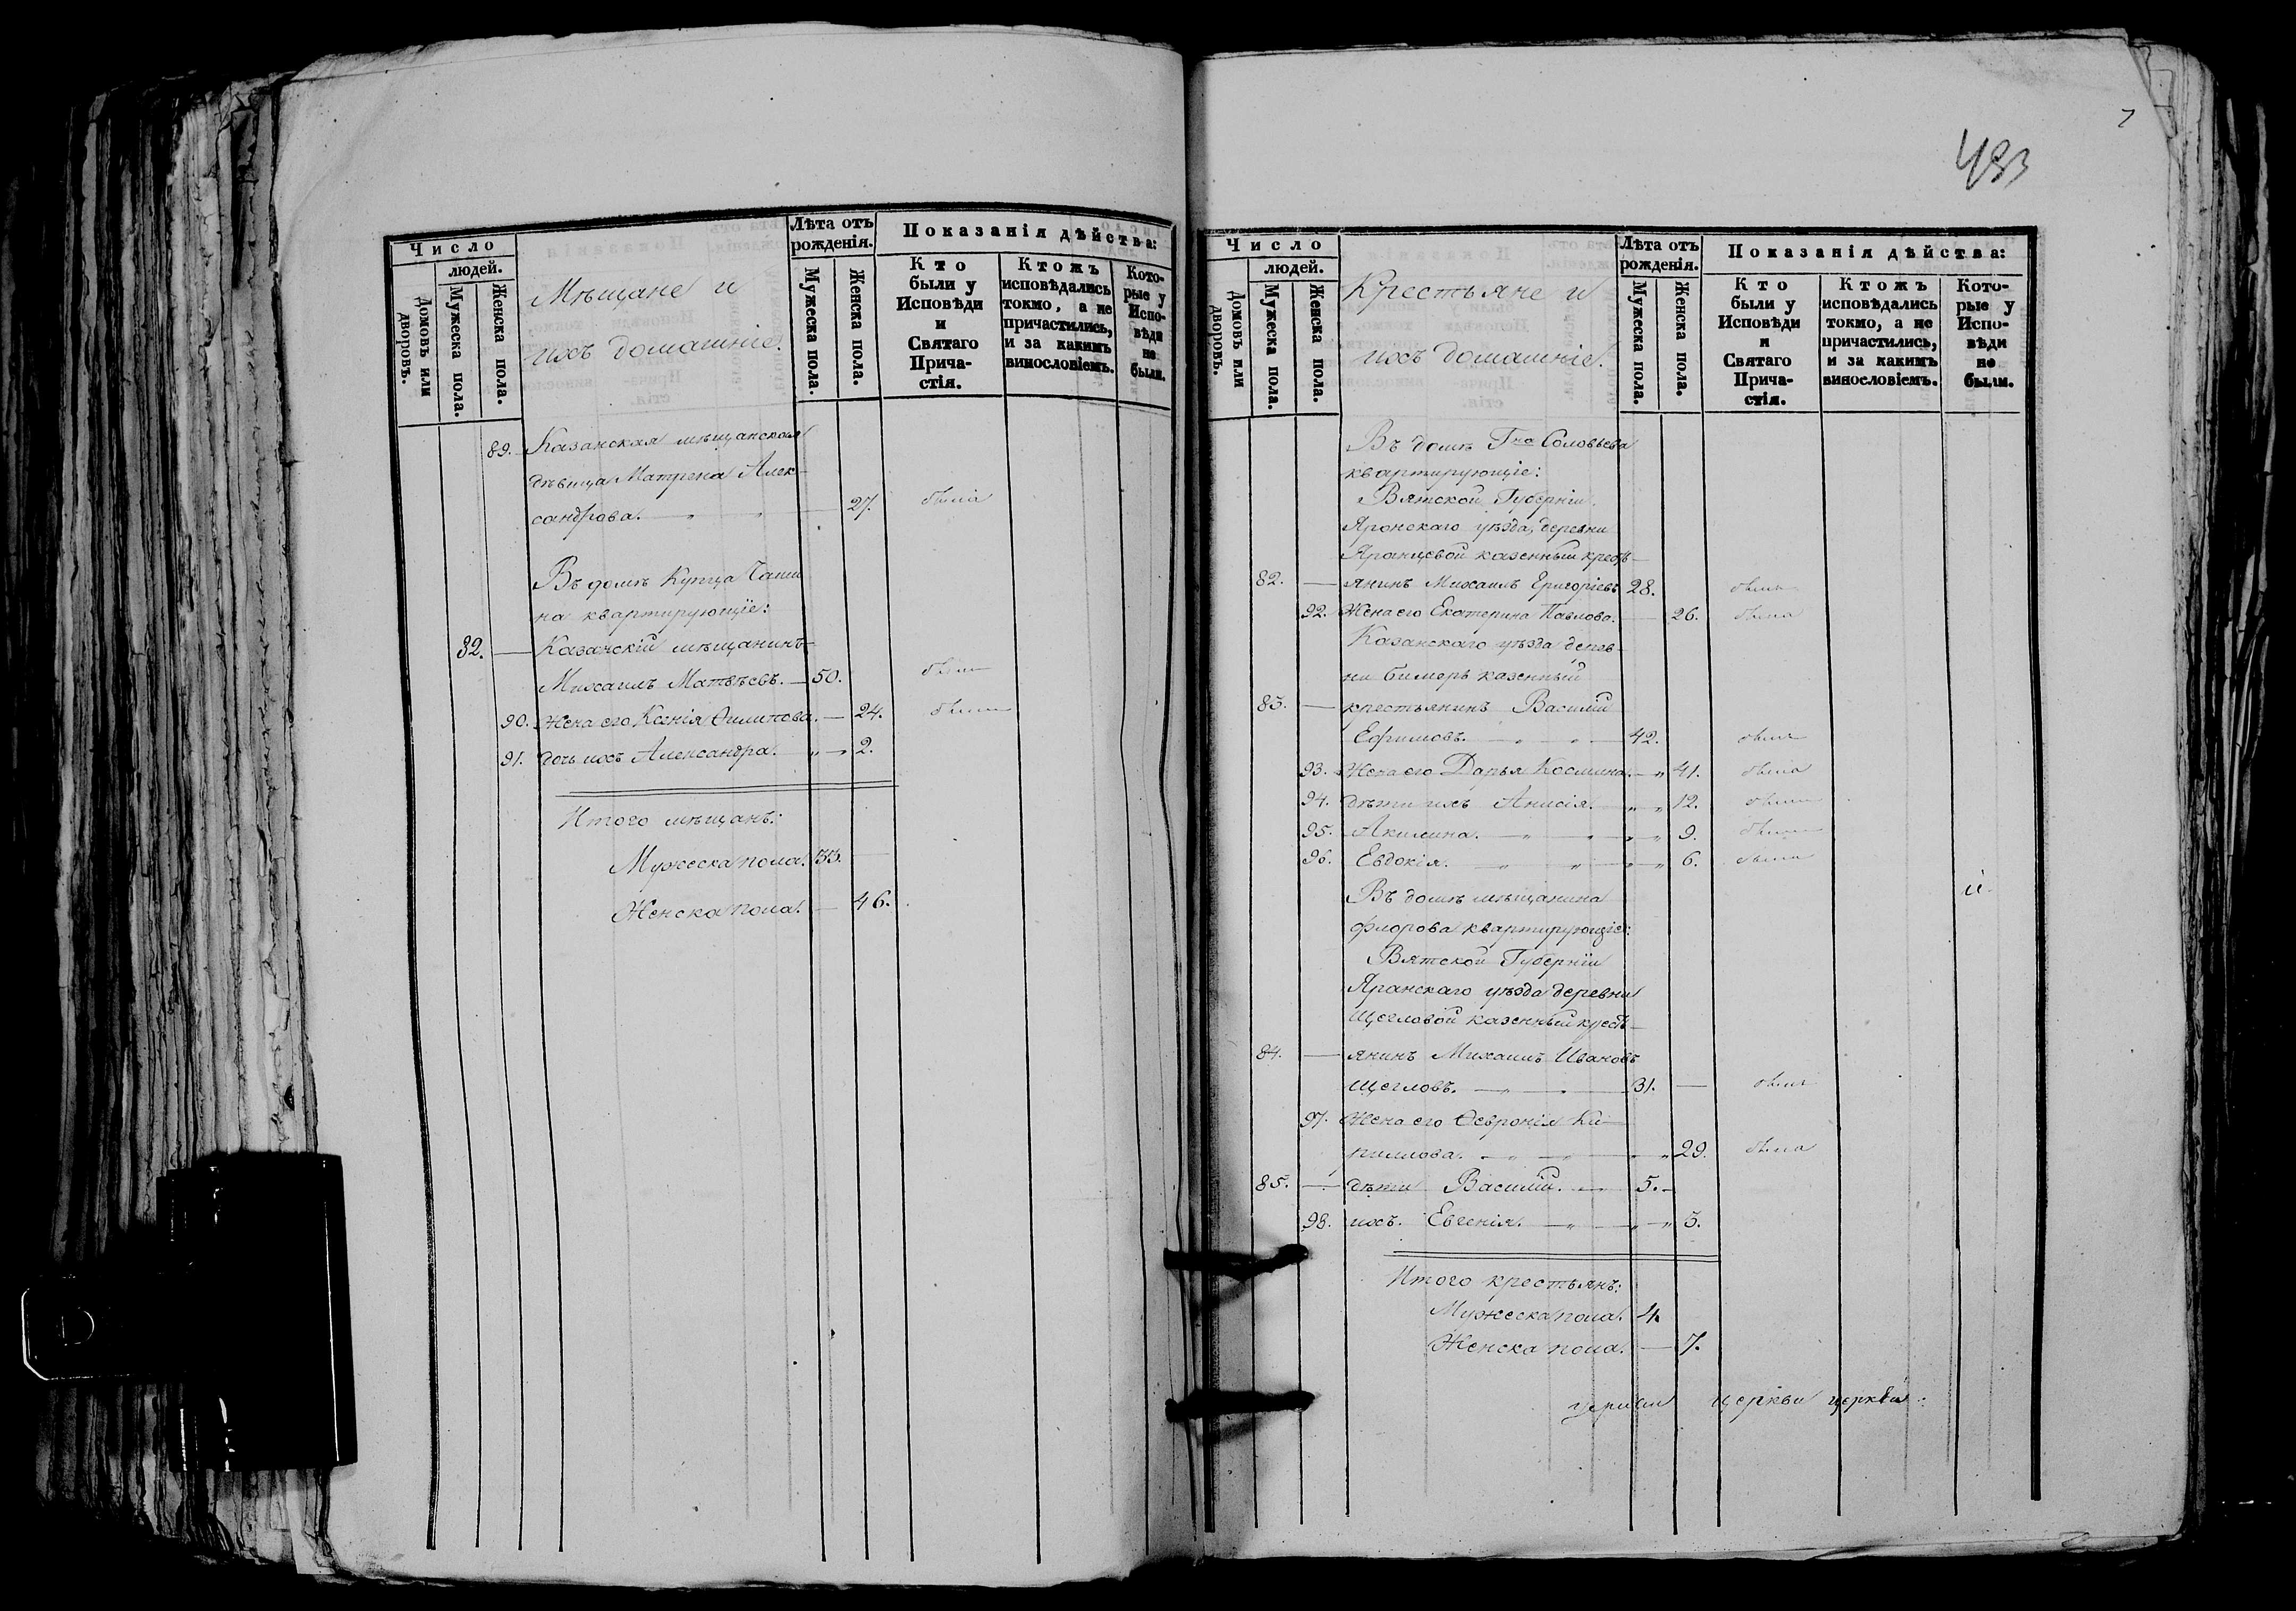 Число
людей.
Домовъ или дворовъ.
Мужеска пола.
Женска пола.
Мѣщане и
ихъ домашніе.
Лѣта отъ
рожденія.
Мужеска пола.
Женска пола.
Показанія дѣйства:
Кто
были у
Исповѣди
и
Святаго
Прича-
стія.
Ктожъ
исповѣдались
токмо, а не
причастились,
и за какимъ
винословіемъ.
Кото-
рые у
Испо-
вѣди
не
были.
89. Казанская мѣщанская
дѣвица Матрена Алек-
сандрова. 27. была
Въ домѣ Купца Чаши
на квартирующіе:
82. — Казанскій мѣщанинъ
Михаилъ Матвѣевъ. — 50. былъ
90. Жена его Ксенія Филипова. — 24. была
91. дочь ихъ Александра. " — " 2.
Итого мѣщанъ:
Мужеска пола. 33. —
Женска пола. — 46.
7
493
Число
людей.
Домовъ или дворовъ.
Мужеска пола.
Женска пола.
Крестьяне и
ихъ домашніе.
Лѣта отъ
рожденія.
Мужеска пола.
Женска пола.
Показанія дѣйства:
Кто
были у
Исповѣди
и
Святаго
Прича-
стія.
Ктожъ
исповѣдались
токмо, а не
причастились,
и за какимъ
винословіемъ.
Кото-
рые у
Испо-
вѣди
не
были.
Въ домѣ Гна Соловьева
квартирующіе:
Вятской Губерніи
Яронскаго уѣзда, деревни
Яранцевой казенный кресть-
82. — янинъ Михаилъ Григорьевъ 28. былъ
92. Жена его Екатерина Павлова. — 26. была
Казанскаго уѣзда дерев-
ни Бимерь казенный
83. — крестьянинъ Василій
Ефимовъ. — " — " — 42. былъ
93. Жена его Дарья Космина. — " 41. была
94. дѣти ихъ Анисія. — " — " 12. была
95. Акилина. — " — " — " 9. была
96. Евдокія. — " — " — " 6. была
Въ домѣ мѣщанина
Флорова квартирующіе:
Вятской Губерніи
Яранскаго уѣзда деревни
Щегловой казенный кресть-
84. — янинъ Михаилъ Ивановъ
Щегловъ. — " — " — 31. — былъ
97. Жена его Февронія Ки-
рилова. — " — " — " 29. была
85. — дѣти Василій. — " — 5. —
98. ихъ. Евгенія. — " — " — " 3.
Итого крестьянъ:
Мужеска пола. 4.
Женска пола. — 7.
церкви церкви